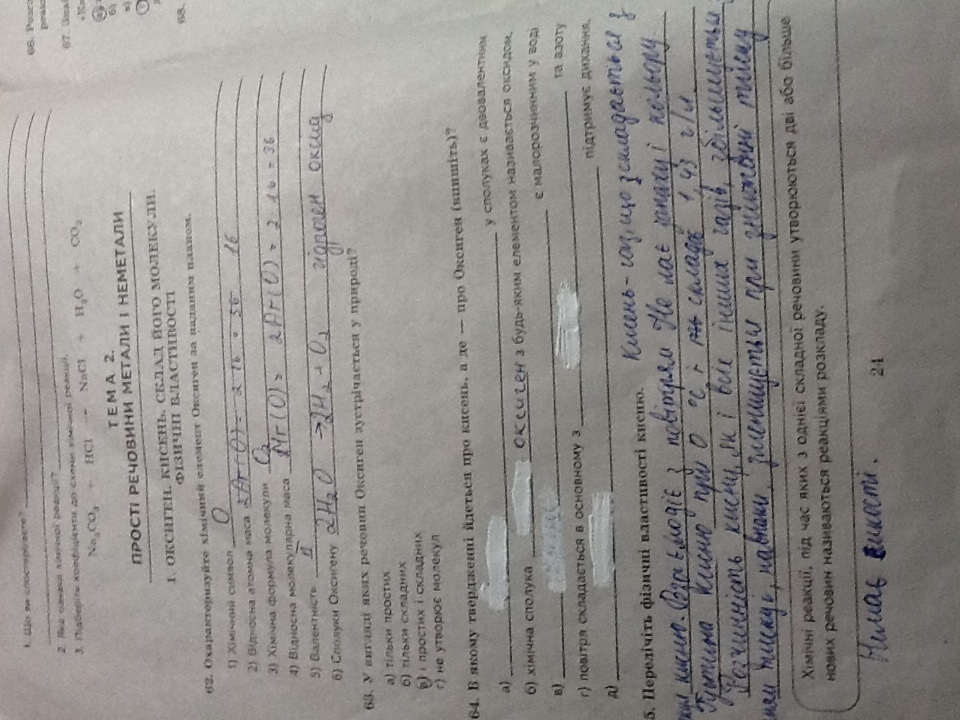 1. Що ви спостерігаєте?
2. Яка ознака хімічної реакції?
3. Підберіть коефіцієнти до схеми хімічної реакції.
Na₂CO₃ + HCl = NaCl + H₂O + CO₂
ТЕМА 2.
ПРОСТІ РЕЧОВИНИ МЕТАЛИ І НЕМЕТАЛИ
1. ОКСИГЕН. КИСЕНЬ, СКЛАД ЙОГО МОЛЕКУЛИ.
ФІЗИЧНІ ВЛАСТИВОСТІ
62. Охарактеризуйте хімічний елемент Оксиген за наданим планом.
1) Хімічний символ O
2) Відносна атомна маса 16
3) Хімічна формула молекули O₂
4) Відносна молекулярна маса Mr(O) = 2Ar(O) = 2 16 = 36
5) Валентність
6) Сполуки Оксигену 2H₂O → 2H₂ + O₂ гідроген оксид
63. У вигляді яких речовин Оксиген зустрічається у природі?
а) тільки простих
б) тільки складних
в) і простих і складних
г) не утворює молекул
64. В якому твердженні йдеться про кисень, а де — про Оксиген (впишіть)?
а) у сполуках є двовалентним
б) хімічна сполука оксиген з будь-яким елементом називається оксидом.
в) є малорозчинним у воді
г) повітря складається в основному з та азоту
д) підтримує дихання.
5. Перелічіть фізичні властивості кисню. Кисень - газ, що складається з
кисню. з повітрям Не має запаху і кольору
Густина кисню при 0 °C складає 1,43 г/л
Розчинність кисню, як і всіх інших газів, збільшується
тиску, навпаки, зменшується при зниженні тиску
Хімічні реакції, під час яких з однієї складної речовини утворюються дві або більше
нових речовин називаються реакціями розкладу.
24
Немає
66.
67.
68.